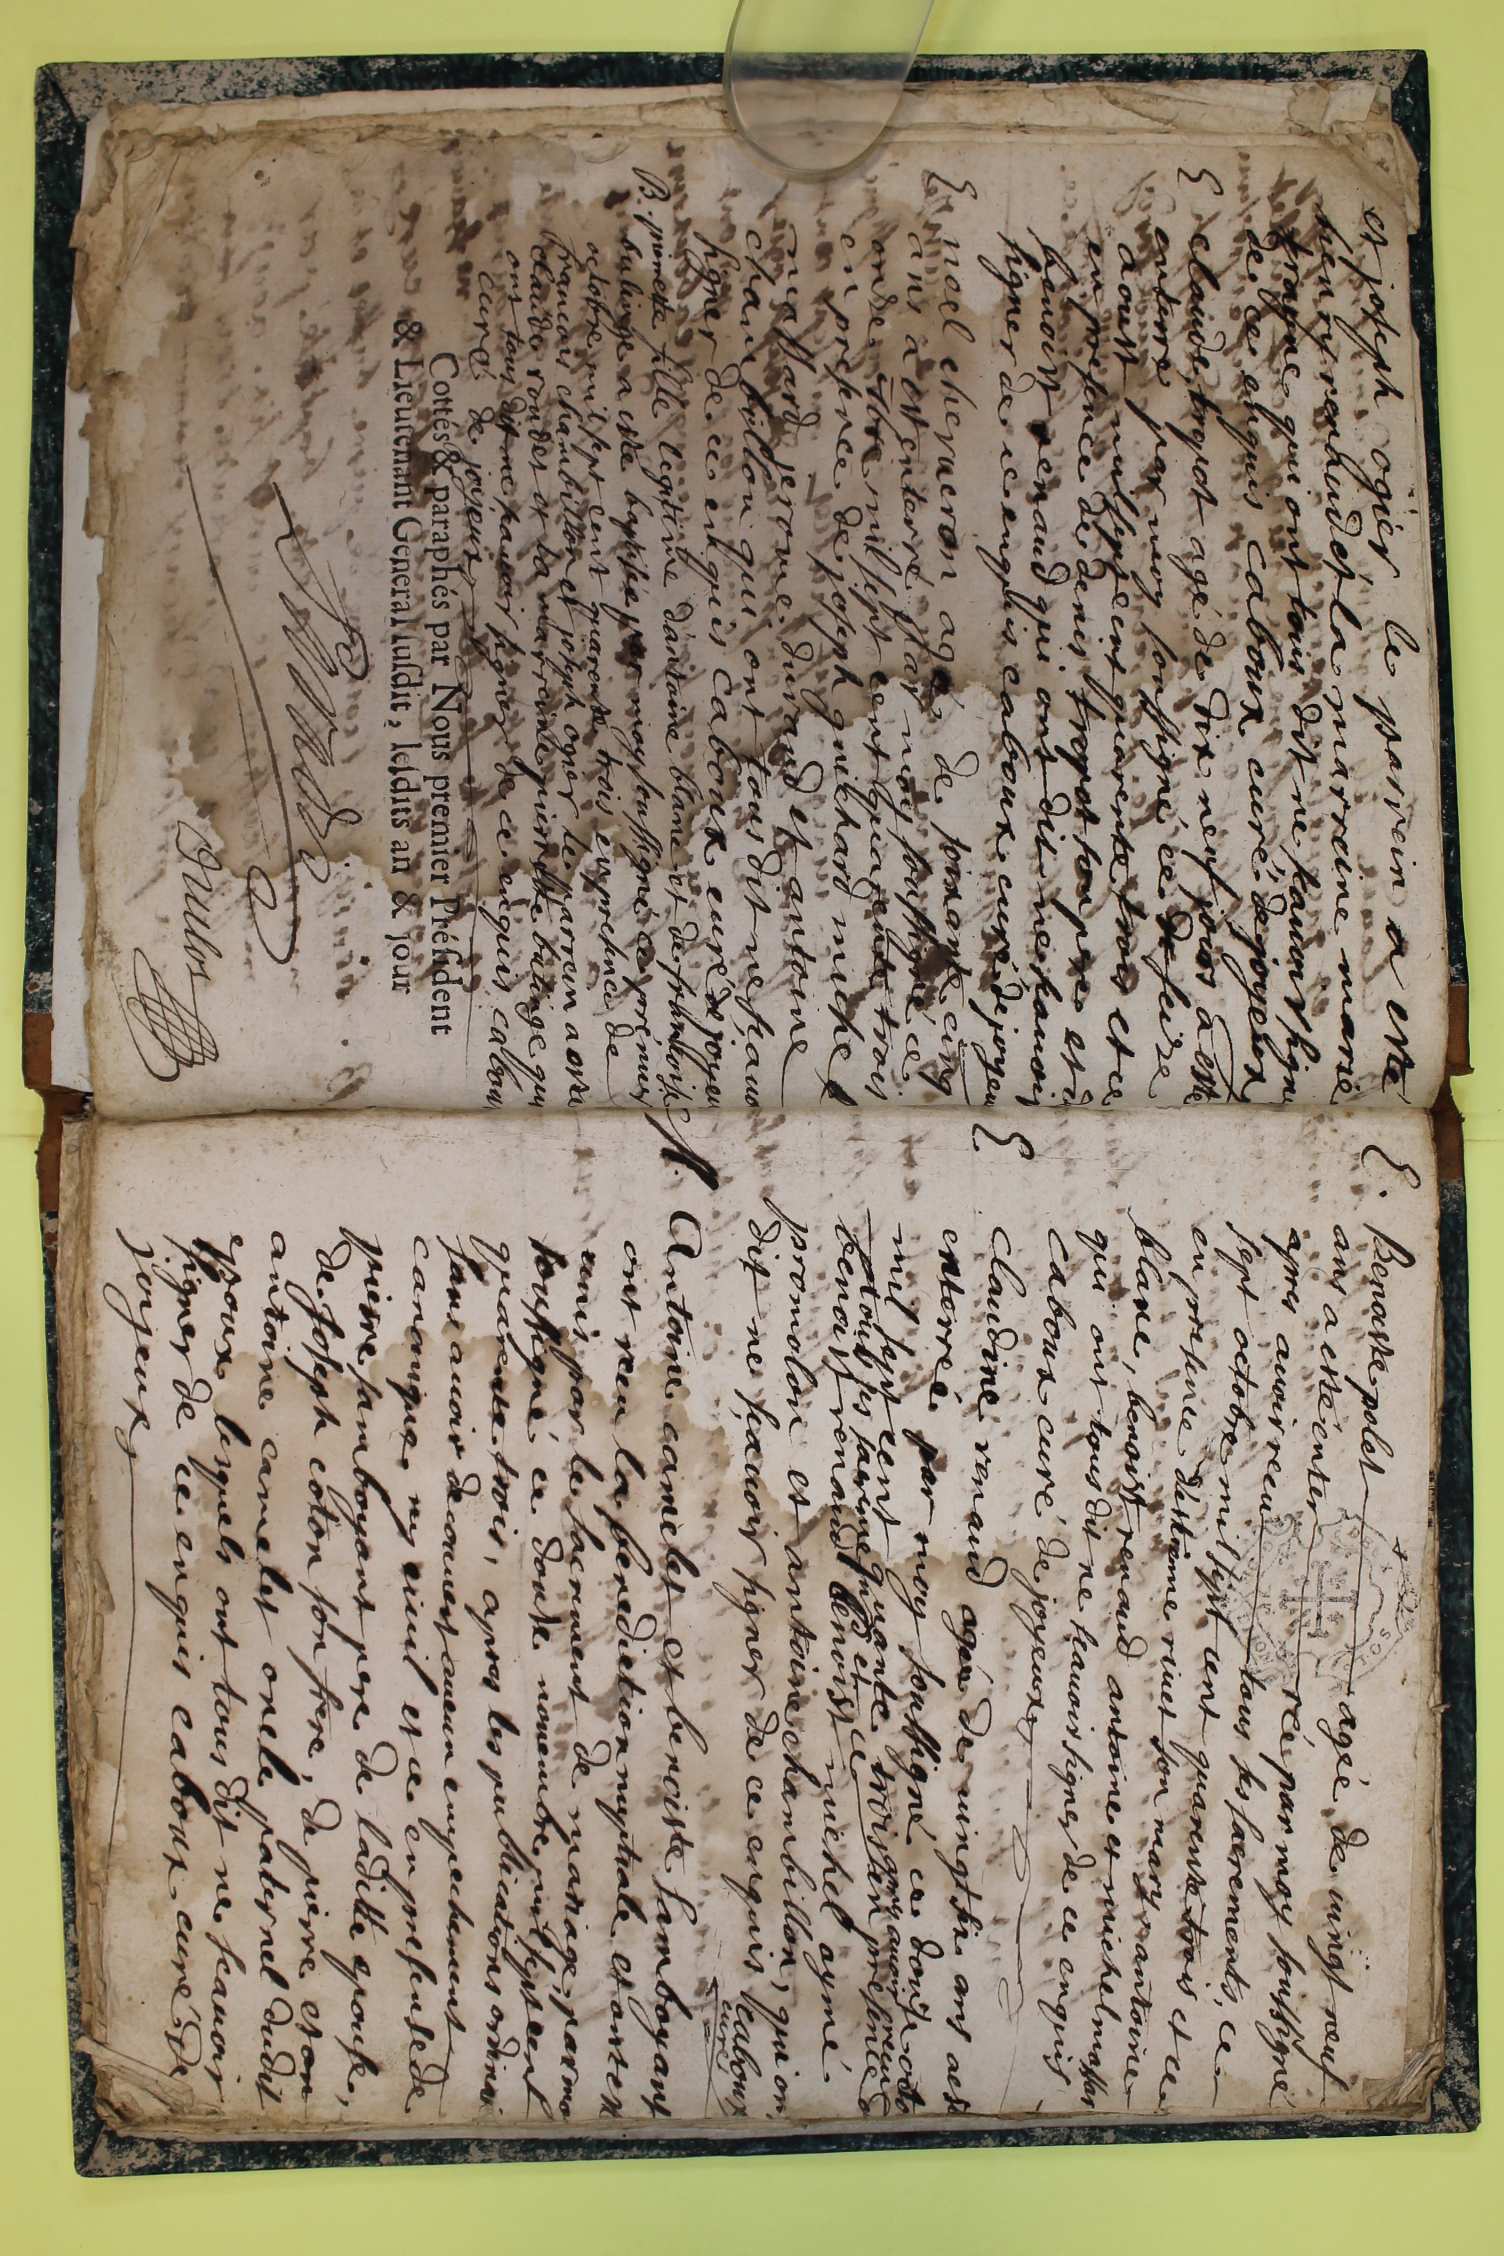 et joseph ogier le parrein a esté
henry renaud et la marreine marie
tragne qui ont tous dit ne scauoir signe
de ce enquis caboux curé de joyeux
E claude tropot agé de dix neuf jours a esté
enterré par moy soussigné ce seize
aoust mil sept cent quarente trois et ce
en presence de denis tropot son pere et d
benoist renaud qui ont dit ne scauoir
signer de ce enquis caboux curé de joyeux
E noel cherueron agé de soixante cinq
ans a est enterré par moy soussigné ce
onze mil sept cent quarente trois
en presence de joseph guichard michel
massard jerome durand et antoine
chambillon qui ont tous dit ne scauo
signer de ce enquis caboux curé de joyeu
B. pierrette fille legitime d'antoine blanc et de
bulinge a esté baptisée par moy soussigné ce premier
octobre mil sept cent quarente trois en presence de
francois chambillon et joseph ogier le parrein a esté
claude rondet et la marreine pierrette bulinge qui
ont tous dit ne scauoir signer de ce enquis caboux
curé de joyeux
Cottés & paraphés par Nous premier Président
& Lieutenant General susdit, lesdits an & jour
E. Benoiste polet agée de uingt neuf
ans a esté enterrée par moy soussigné
apres auoir receu tous ses sacrements, ce
sept octobre mil sept cent quarente trois et ce
en presence d'estienne riuet son mary antoine
blanc, benoist renaud antoine et michel massar
qui ont tous dit ne scauoir signer de ce enquis
caboux curé de joyeux
E claudine renaud agée de uingt six ans a esté
enterrée par moy soussigné ce douze octo
mil sept cent quarente trois apres auoir receu
tous ses sacrements et ce en presence d
benoist renaud benoist michel aymé
promolon et antoine chambillon, qui on
dit ne scauoir signer de ce enquis caboux
curé
M. Antoine camelet et benoiste samboyant
ont receu la benediction nuptiale et ont est
unis par le sacrement de mariage, par mo
soussigné ce douze nouembre mil sept cent
quarente trois, apres les publications ordinai
sans auoir decouuert aucun empechement
canonique ny ciuil et ce en presence de
pierre samboyant pere de laditte epouse,
de joseph coton son frere, de pierre et on
antoine camelet oncle paternel dudit
epoux lesquels ont tous dit ne scauoir
signer de ce enquis caboux curé de
joyeux